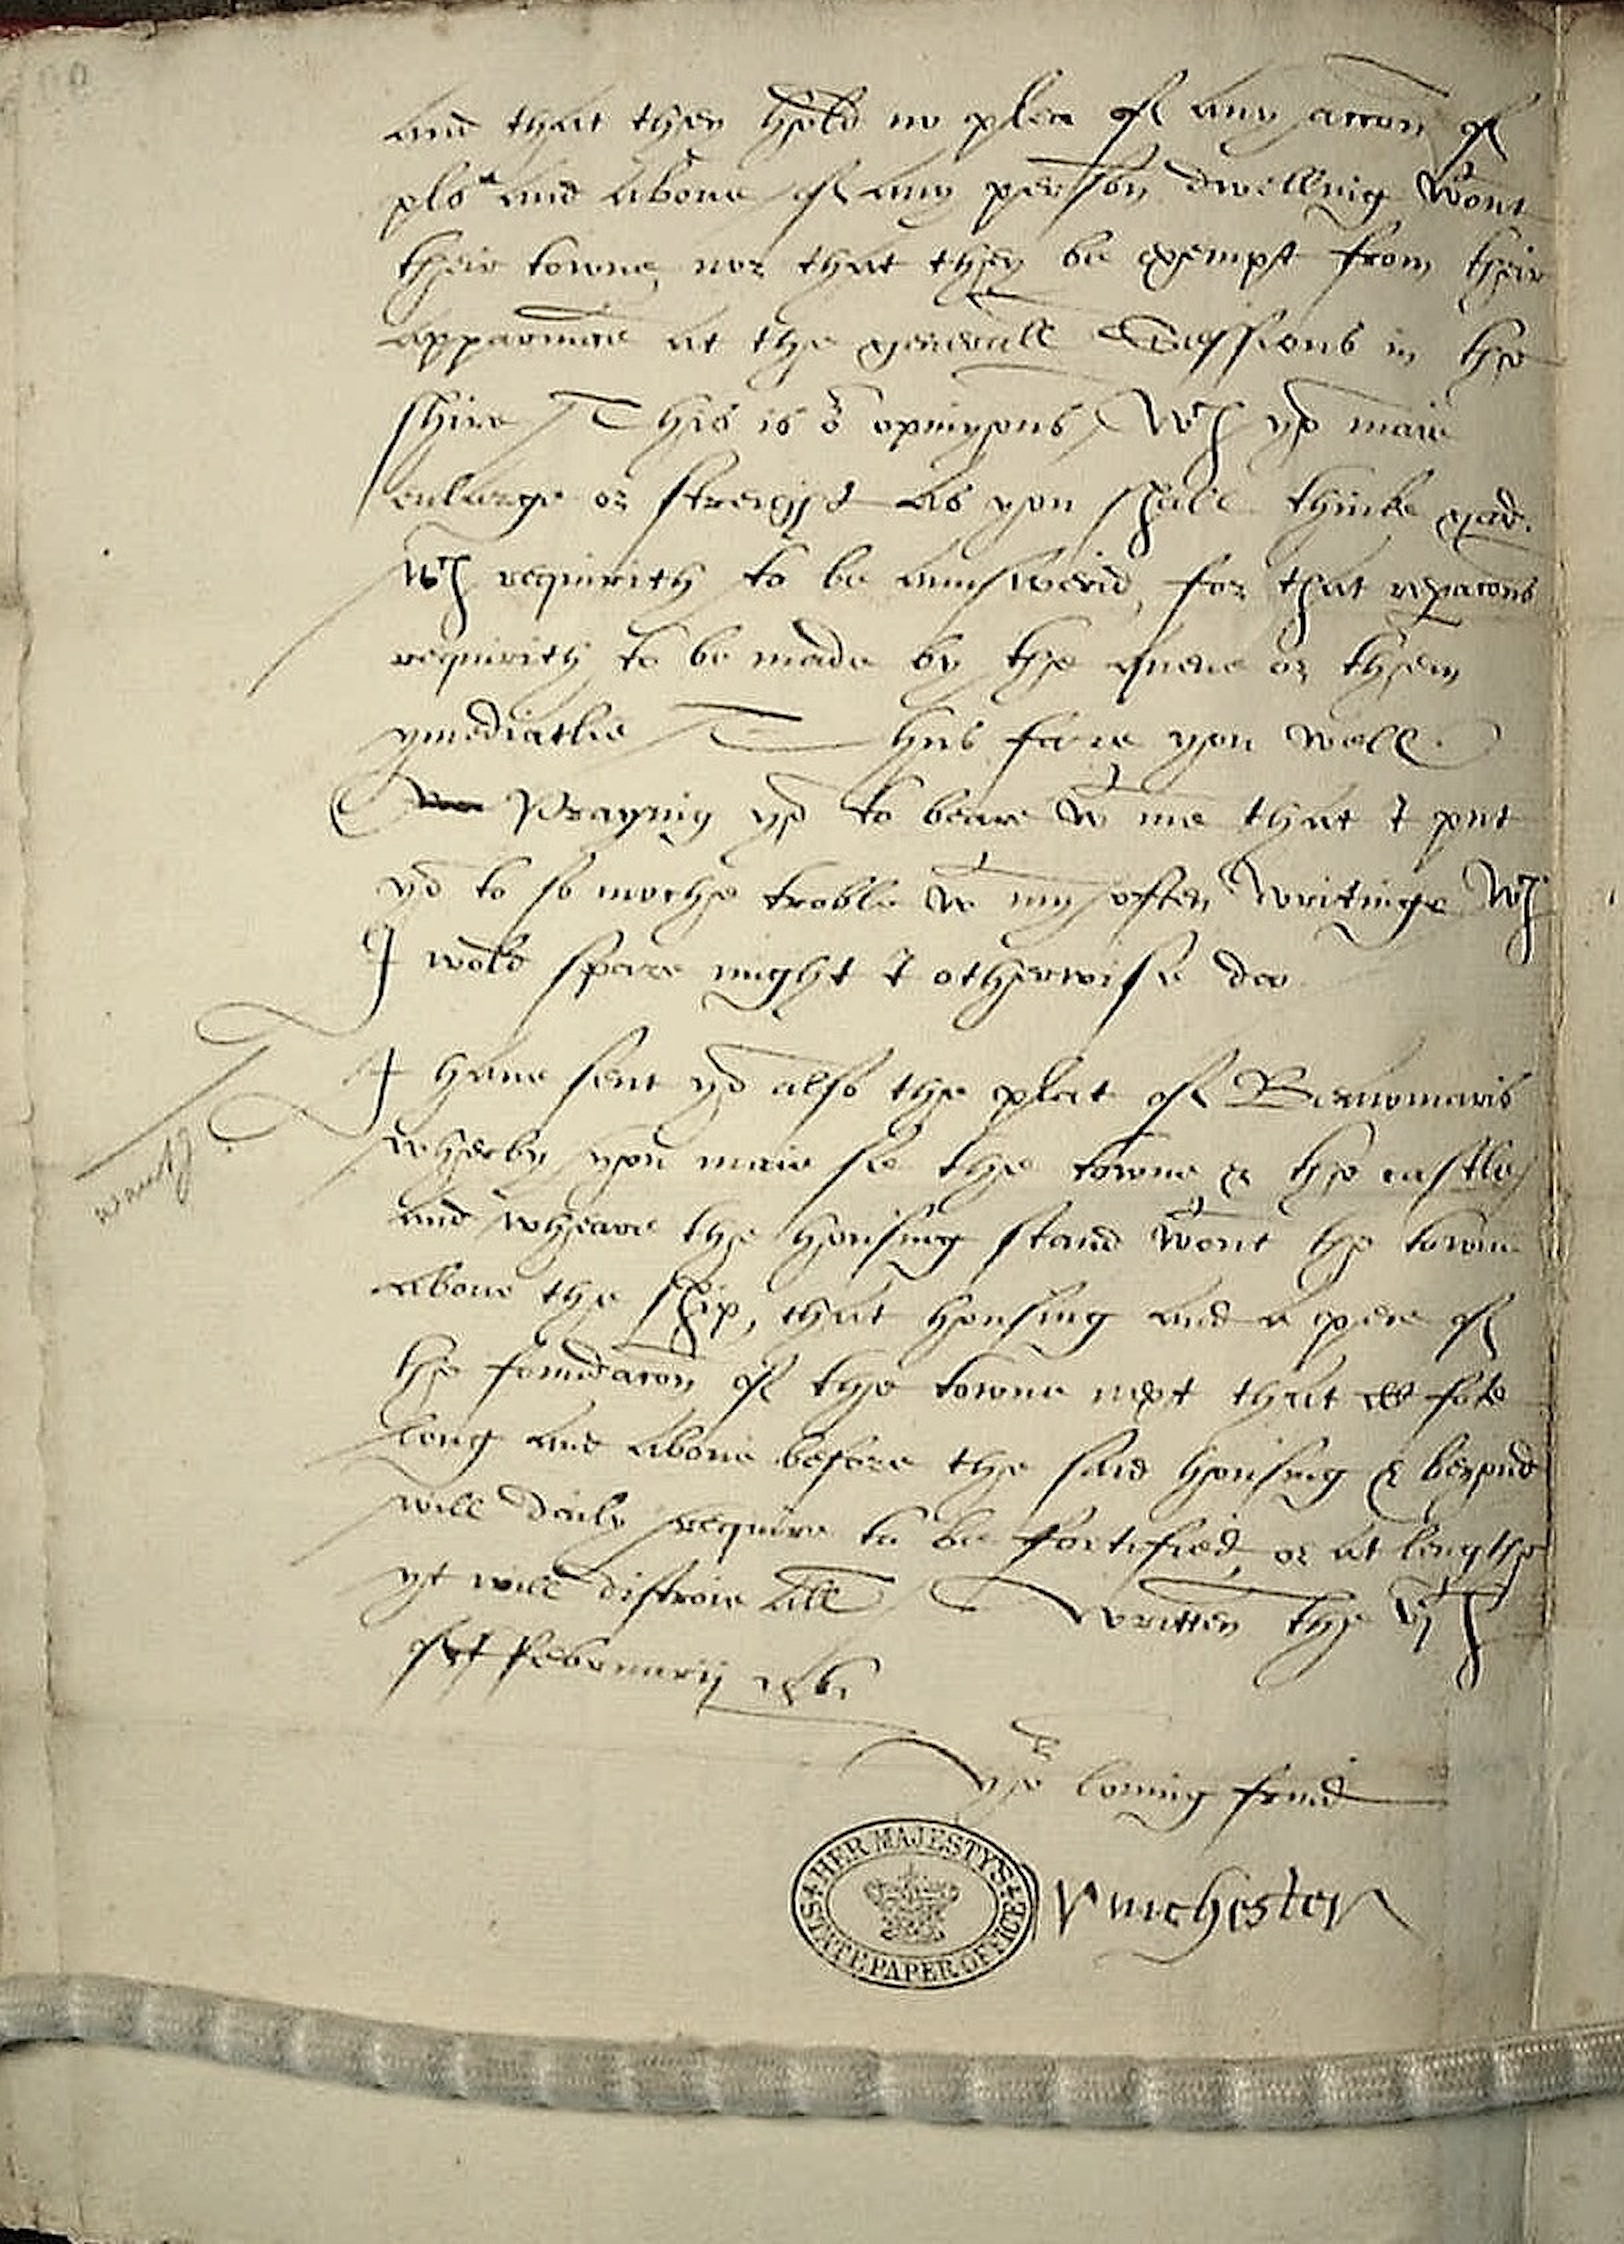 and that they hold no plea of any accon of
xls and above of any person dwelling wout
their towne, nor that they be exempt from their
apparunce at the generall Sessions in the
shire / This is or opinyons / wch yo maie
enlarge or streight as you shall thinke good.
wch requirith to be aunswerid, for that repacons
requirith to be made by the quene or them
ymediatlie / Thus fare you well.
Prayng yo to beare wt me that I put
yo to so moche troble wt my often writinge wch
I wold spare might I otherwise doo.
I have sent yo also the plat of Bewmaris
wherby you maie se the towne & the castle
wantg
and wheare the housing stand wout the towne
above the ship, that housing and a pece of
the foundacon of the towne next that fote
long and above before the said housing & beyond
will daily require to be fortified, or at lengthe
yt will distroie all / Written the vjth
of February 1561
yor loving frend
HER MAJESTY'S STATE PAPER OFFICE
Winchester